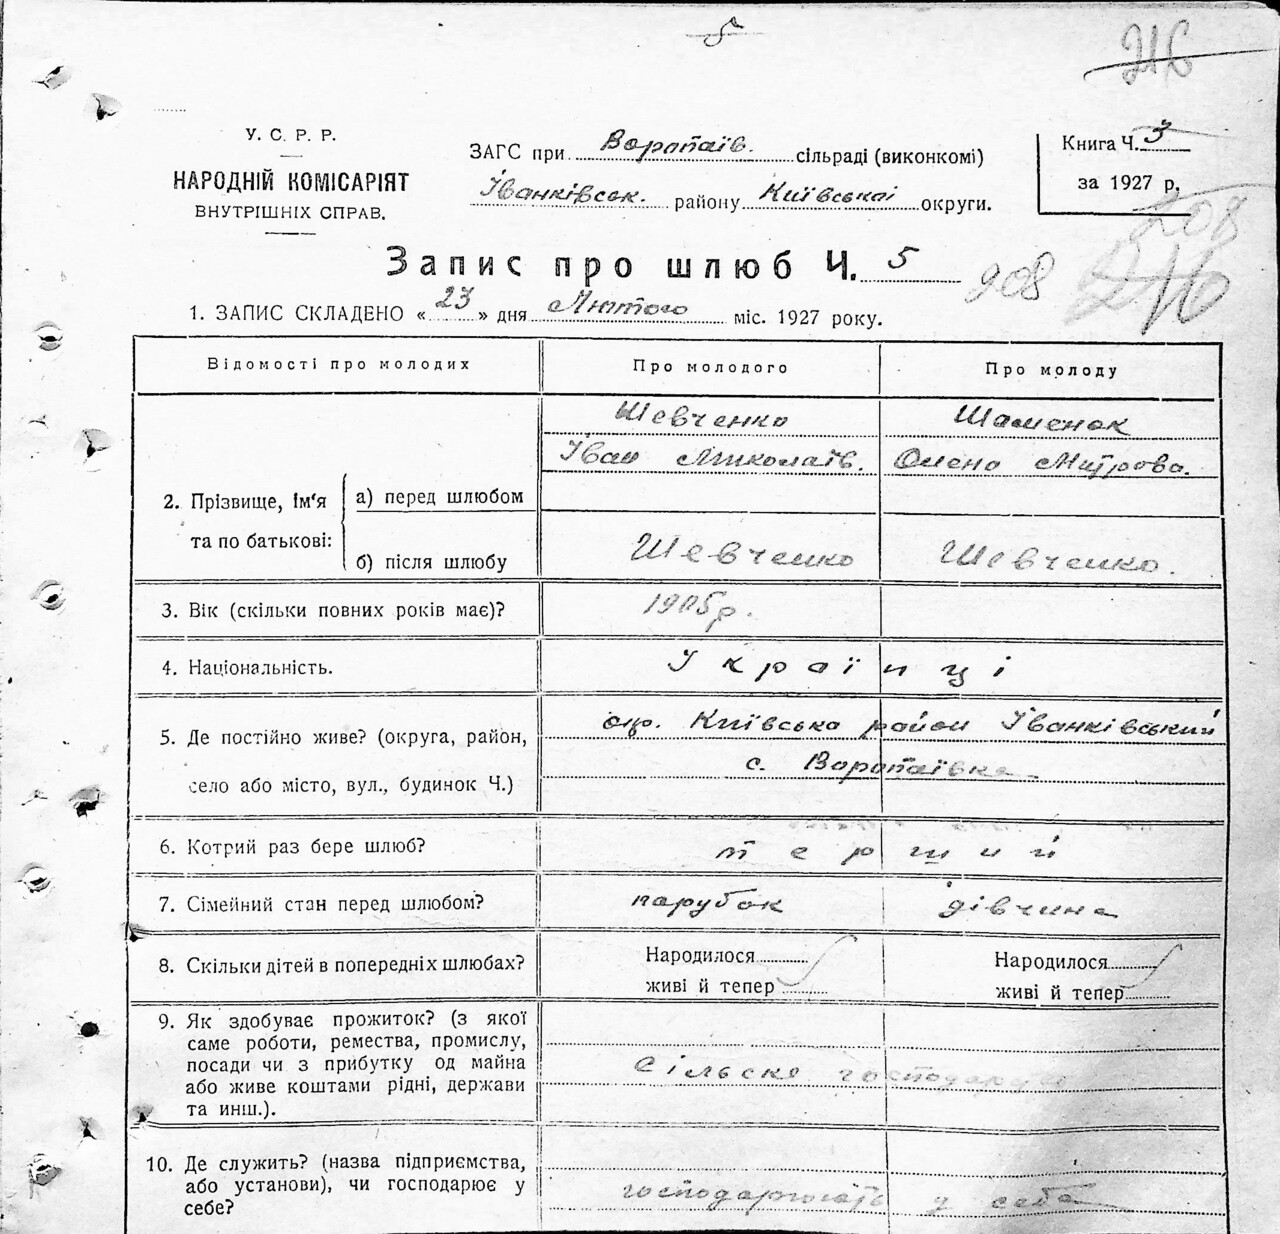 5
216
У. С. Р. Р.
НАРОДНІЙ КОМІСАРІЯТ
ВНУТРІШНІХ СПРАВ.
ЗАГС при Воропаїв. сільраді (виконкомі)
Іванківськ. району Київської округи.
Книга Ч. 3
за 1927 р.
208
216
908
Запис про шлюб Ч. 5
1. ЗАПИС СКЛАДЕНО « 23 » дня Лютого міс. 1927 року.
Відомості про молодих Про молодого Про молоду
Шевченко Шаменок
Іван Миколаїв. Олена Митрова.
2. Прізвище, ім'я та по батькові:
а) перед шлюбом
б) після шлюбу Шевченко Шевченко.
3. Вік (скільки повних років має)? 1905р.
4. Національність. Українці
5. Де постійно живе? (округа, район, окр. Київська район Іванківський
село або місто, вул., будинок Ч.) с. Воропаївка
6. Котрий раз бере шлюб? перший
7. Сімейний стан перед шлюбом? парубок дівчина
8. Скільки дітей в попередніх шлюбах? Народилося Народилося
живі й тепер живі й тепер
9. Як здобуває прожиток? (з якої
саме роботи, ремества, промислу,
посади чи з прибутку од майна Сільске
або живе коштами рідні, держави
та инш.).
10. Де служить? (назва підприємства,
або установи), чи господарює у господарюють у себе
себе?